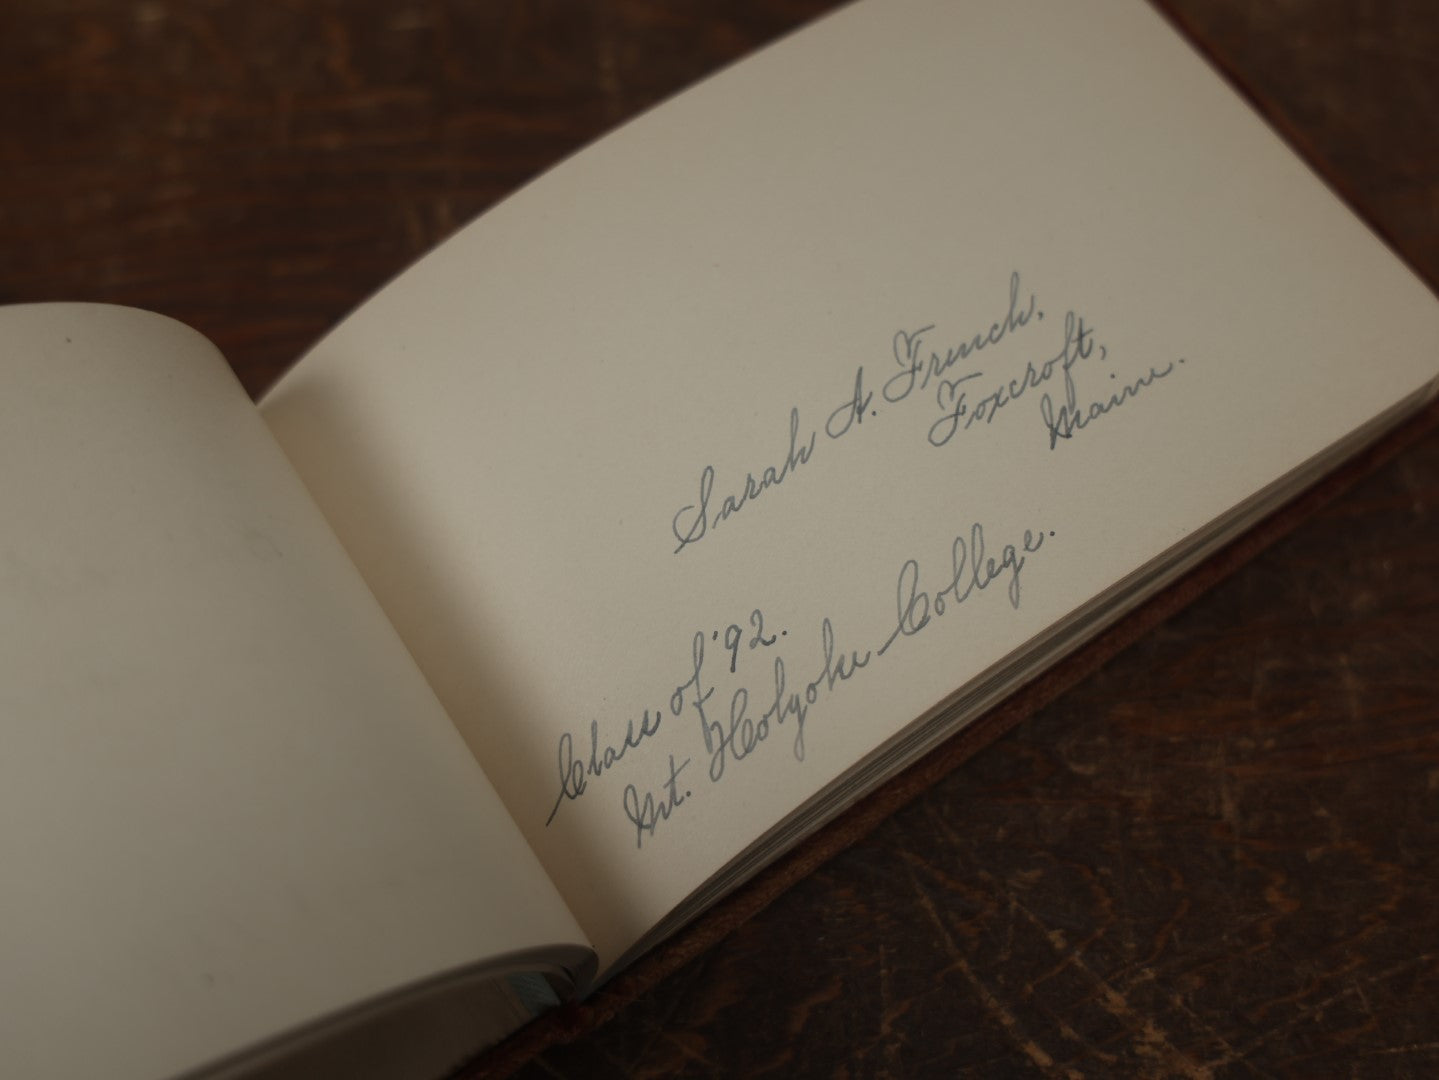 Sarah A. French,
Foxcroft,
Maine.
Class of '92.
Mt. Holyoke College.